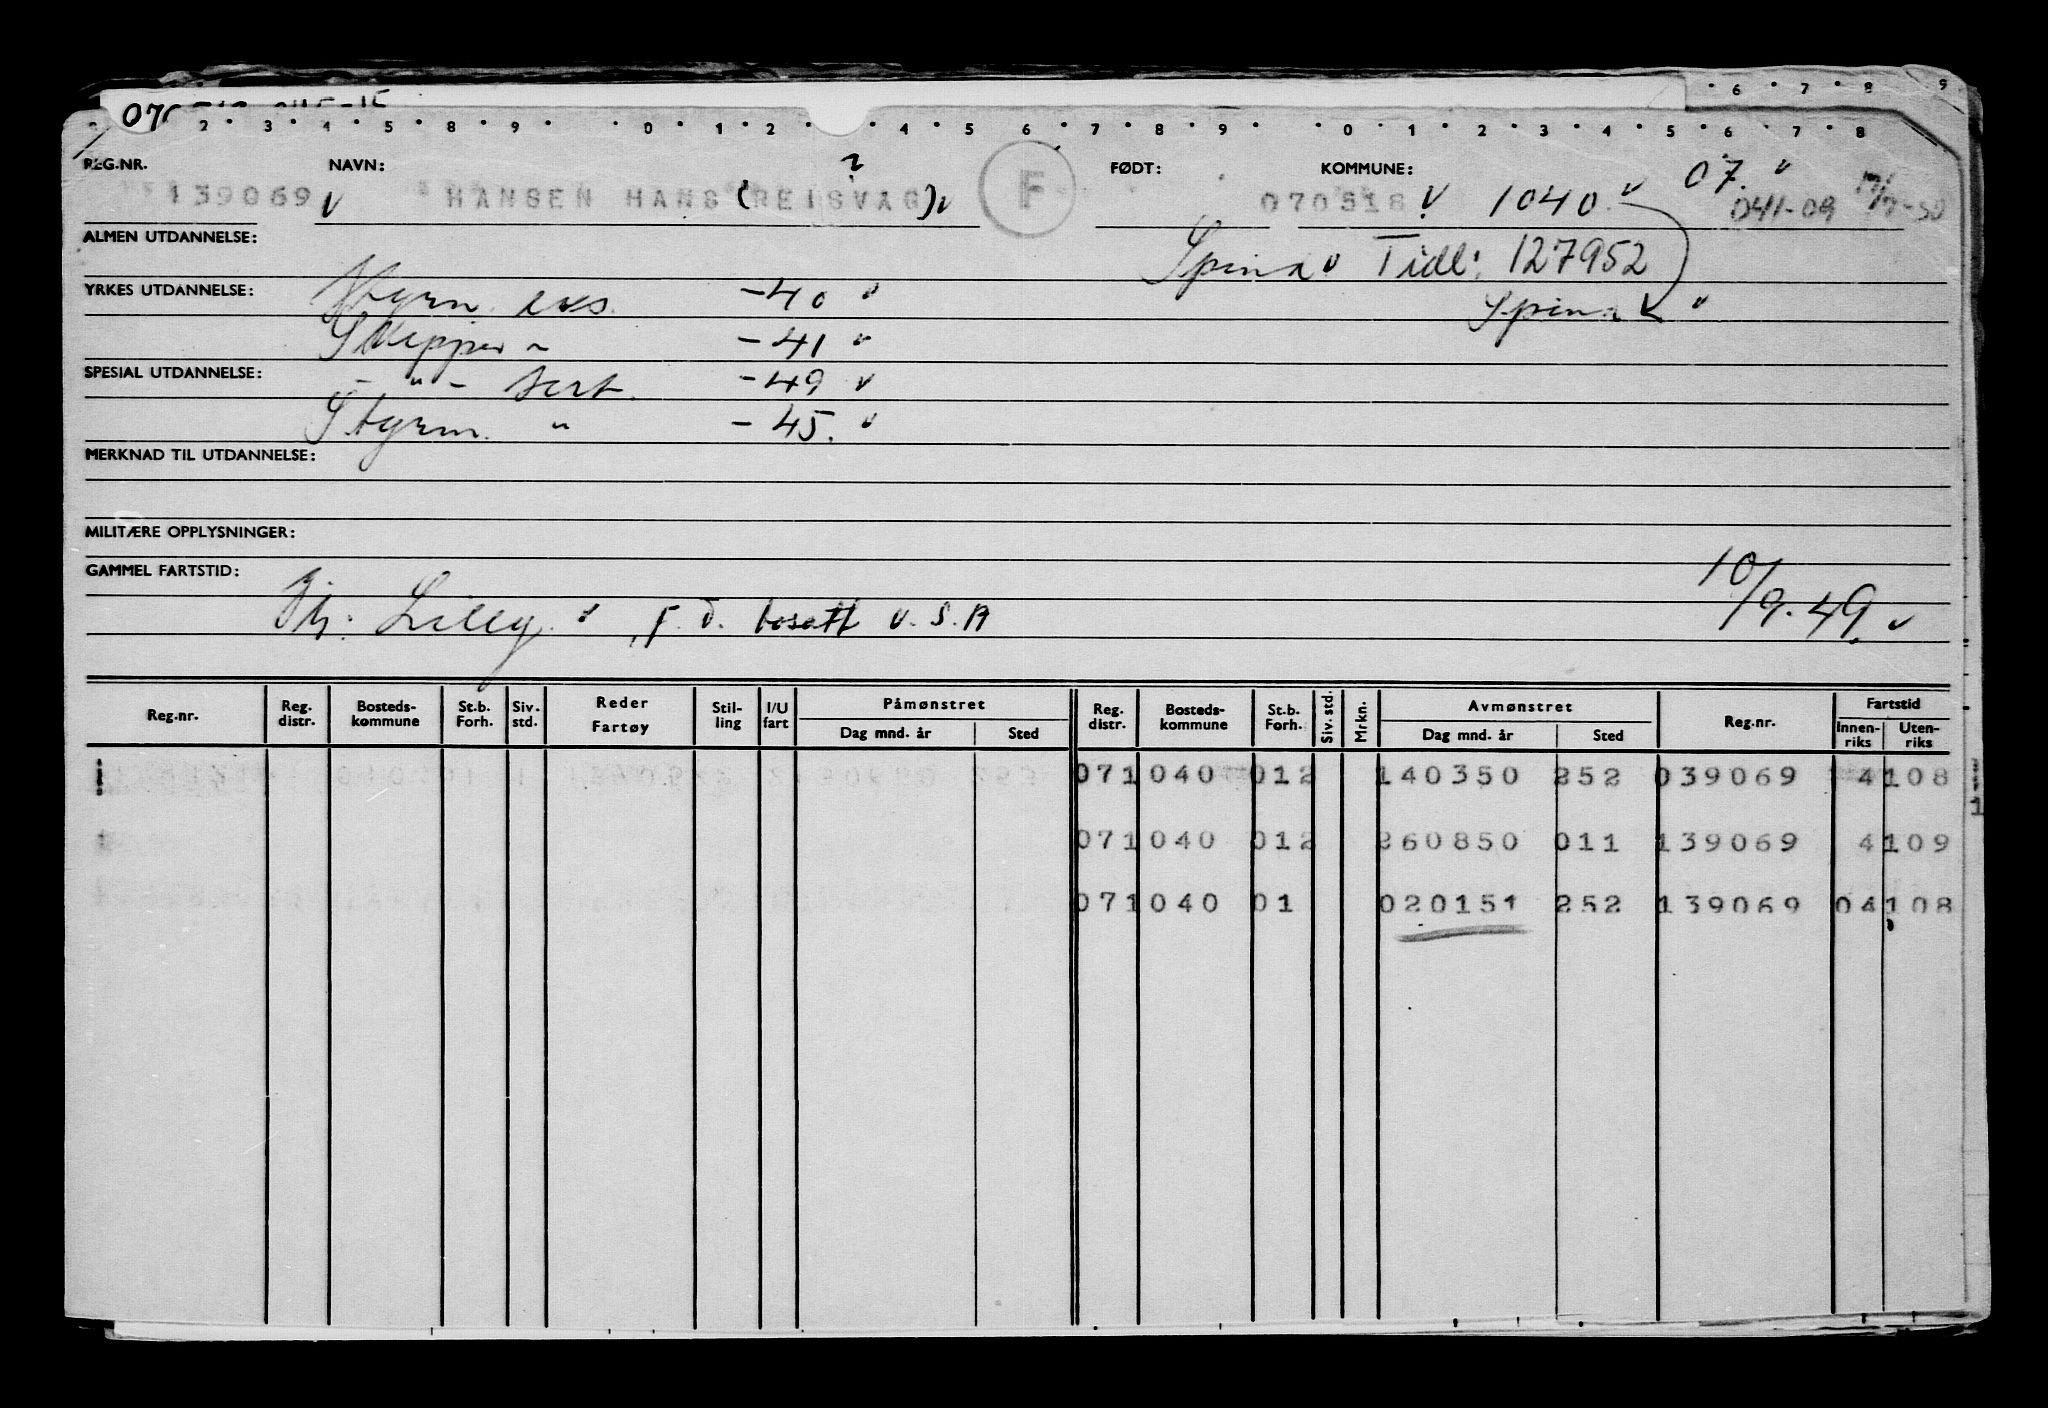 070
2 3 4 5 8 9 0 1 2 4 5 6 7 8 9 0 1 2 3 4 5 6 7 8
6 7 8 9
REG.NR. NAVN: ? FØDT: KOMMUNE: 07. v
139069 v HANSEN HANS (REISVAG) v F 070518 v 1040 v 041-09
ALMEN UTDANNELSE: Spind v Tidl: 127952
YRKES UTDANNELSE: Styrm. eks. -40 v Spind v
Skipper " -41 v
SPESIAL UTDANNELSE: - " - sert. -49 v
Styrm. " -45. v
MERKNAD TIL UTDANNELSE:
MILITÆRE OPPLYSNINGER:
GAMMEL FARTSTID: 10/9.49. v
Lilly. v f. t. bosatt U.S.A
Reg.nr. Reg. distr. Bosteds-kommune St.b. Forh. Siv. std. Reder Fartøy Stil-ling I/U fart Påmønstret Dag mnd. år Sted Reg. distr. Bosteds-kommune St.b. Forh. Siv. std. Mrkn. Avmønstret Dag mnd. år Sted Reg.nr. Fartstid Innen-riks Uten-riks
071040 012 140350 252 039069 4108
071040 012 260850 011 139069 4109
071040 01 020151 252 139069 04108